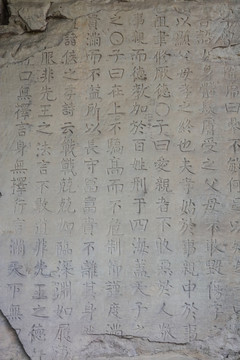 不敏何
膚受之父母不敢毀傷孝
以顯父母孝之終也夫孝始於事親中於事
祖聿脩厥德〇子曰愛親者不敢惡於人敬
事親而德教加於百姓刑于四海蓋天子之
之〇子曰在上不驕高而不危制節謹度滿
貴滿而不溢所以長守富富貴不離其身
諸侯之孝詩云戰戰兢兢如臨深淵如履
服非先王之法言不敢道非先王之德
口無擇言身無擇行言滿天下無口